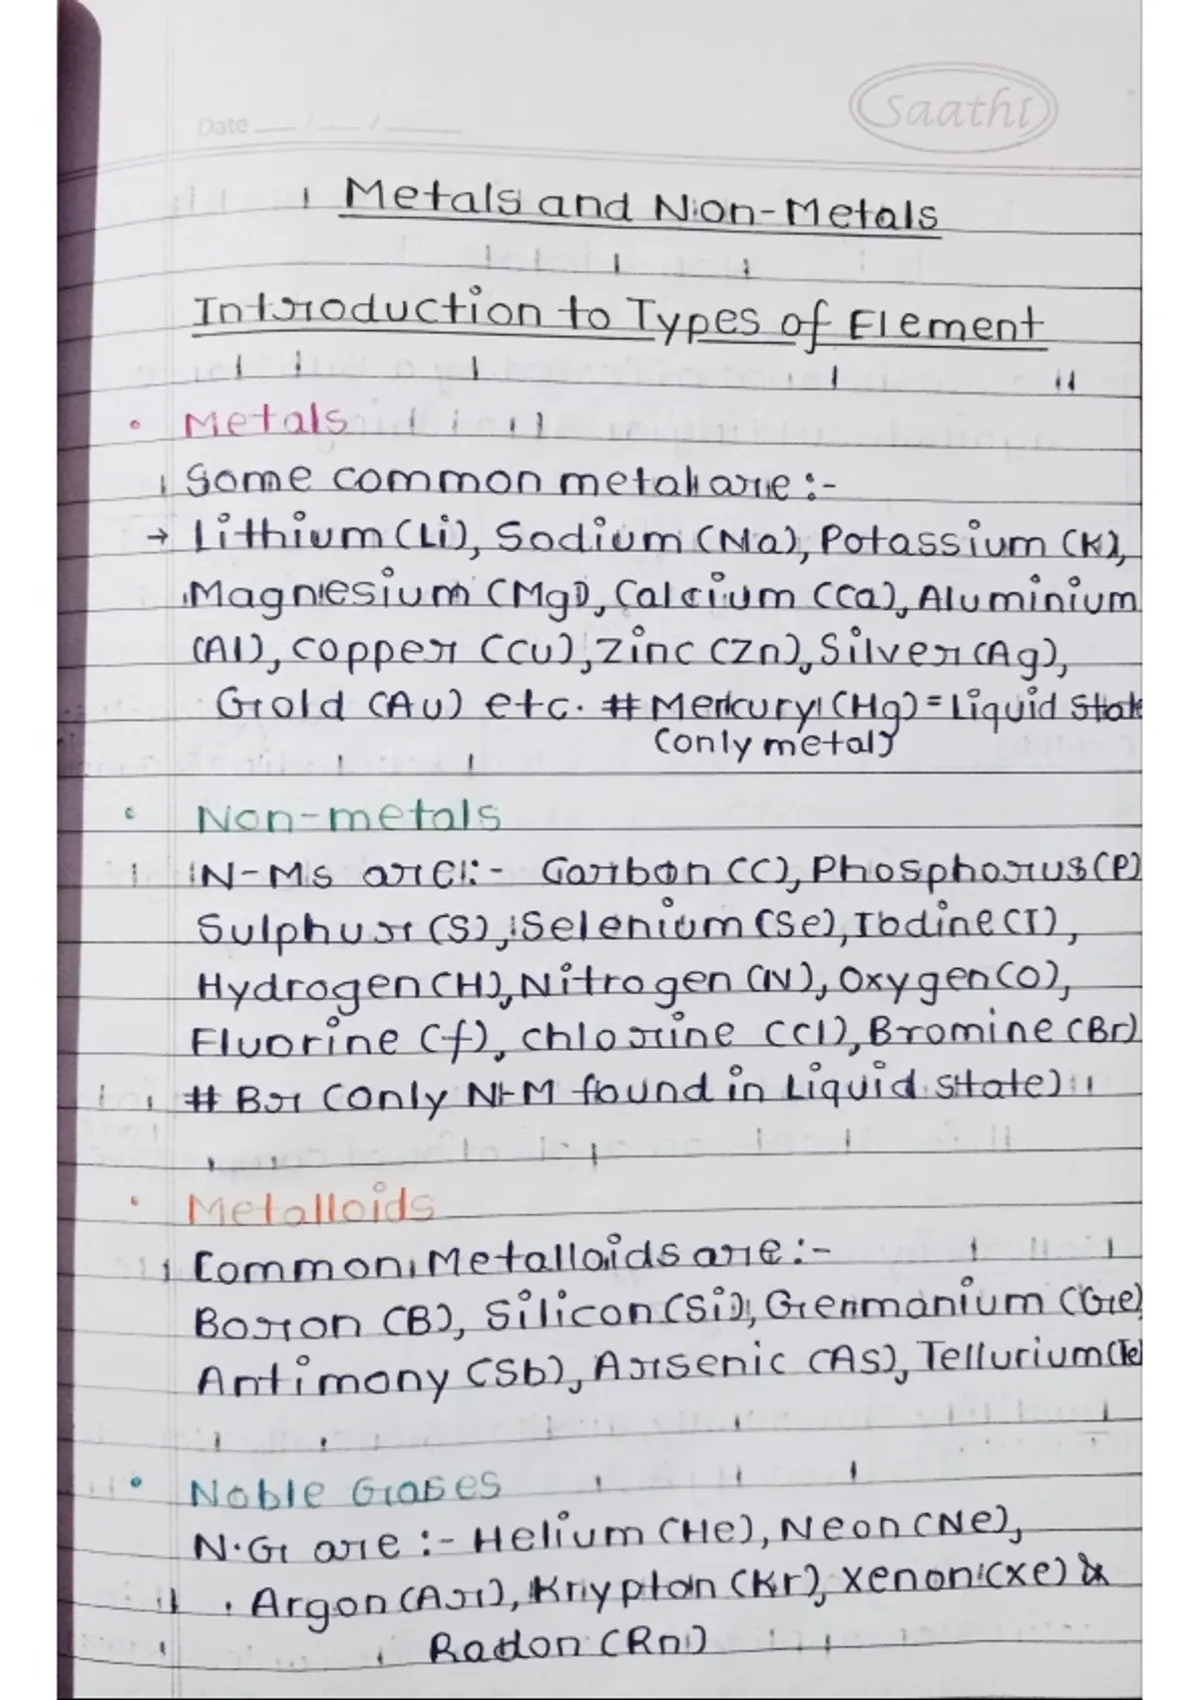 Saathi
Date __/__/____
Metals and Non-Metals
Introduction to Types of Element
• Metals
Some common metal are :-
→ Lithium (Li), Sodium (Na), Potassium (K),
Magnesium (Mg), Calcium (Ca), Aluminium
(Al), Copper (Cu), Zinc (Zn), Silver (Ag),
Gold (Au) etc. # Mercury (Hg) = Liquid State
(only metal)
• Non-metals
N-Ms are :- Carbon (C), Phosphorus (P)
Sulphur (S), Selenium (Se), Iodine (I),
Hydrogen (H), Nitrogen (N), Oxygen (O),
Fluorine (f), chlorine (Cl), Bromine (Br)
# Br (only N-M found in Liquid state)
• Metalloids
Common Metalloids are :-
Boron (B), Silicon (Si), Germanium (Ge)
Antimony (Sb), Arsenic (As), Tellurium (Te)
• Noble Gases
N.G are :- Helium (He), Neon (Ne),
Argon (Ar), Krypton (Kr), Xenon (Xe) &
Radon (Rn)